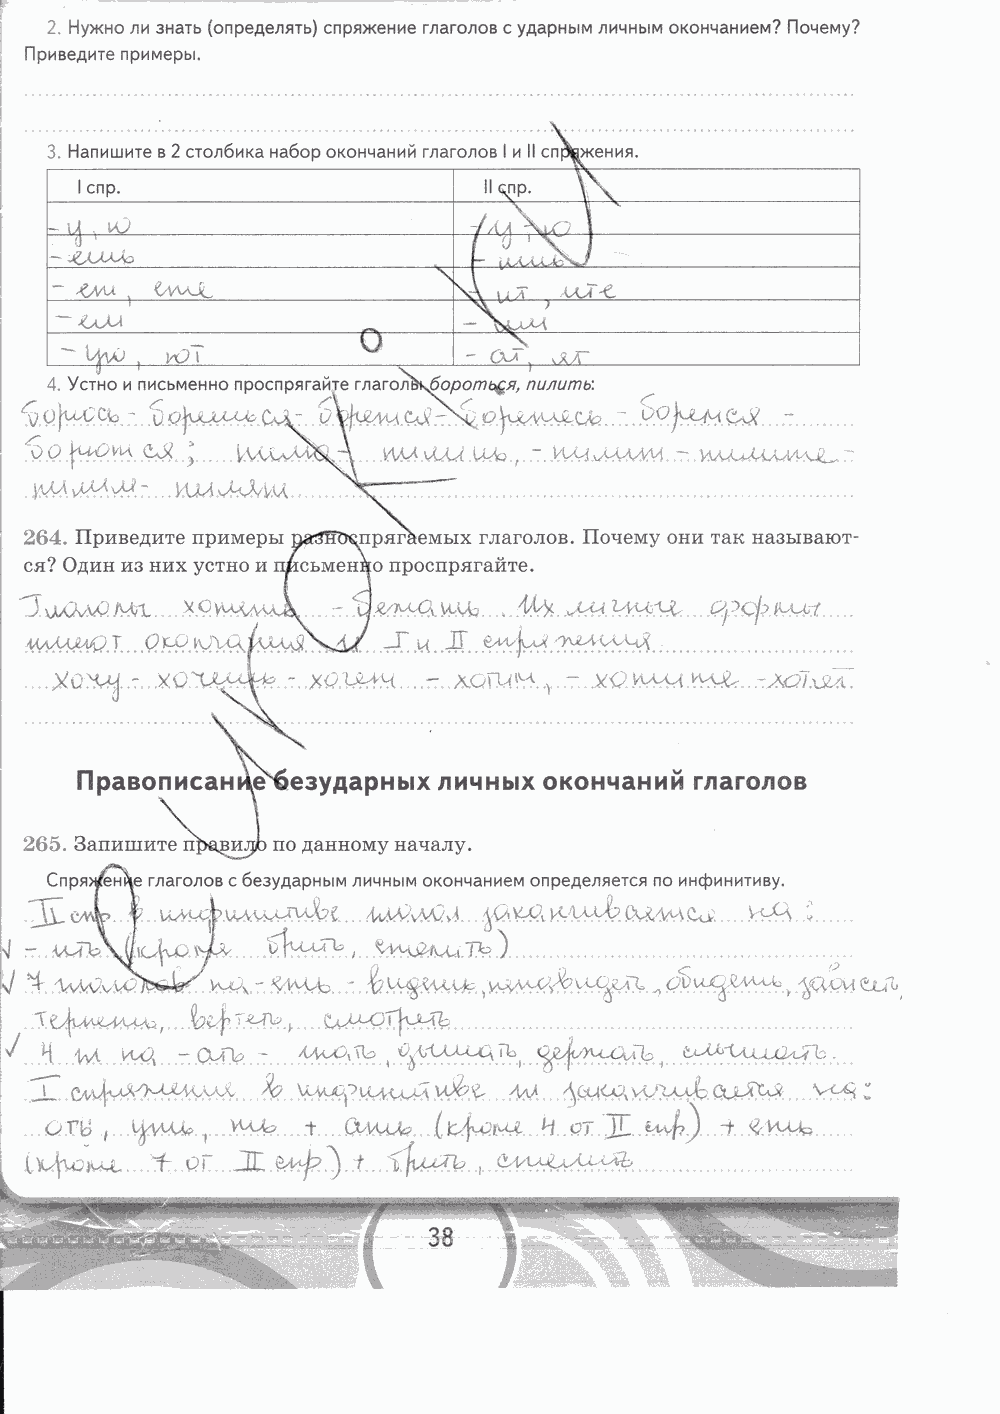 2. Нужно ли знать (определять) спряжение глаголов с ударным личным окончанием? Почему?
Приведите примеры.
3. Напишите в 2 столбика набор окончаний глаголов I и II спряжения.
I спр. II спр.
- у, ю - у, - ю
- ешь - ишь
- ет, ете - ит, ите
- ем - им
- ут, ют - ат, ят
4. Устно и письменно проспрягайте глаголы бороться, пилить:
борюсь - борешься - борется - боретесь - боремся -
борются; пилю - пилишь, - пилит - пилите -
пилим - пилят
264. Приведите примеры разноспрягаемых глаголов. Почему они так называют-
ся? Один из них устно и письменно проспрягайте.
Глаголы хотеть - бежать. Их личные формы
имеют окончания и I и II спряжения.
хочу - хочешь - хочет - хотим, - хотите - хотят.
Правописание безударных личных окончаний глаголов
265. Запишите правило по данному началу.
Спряжение глаголов с безударным личным окончанием определяется по инфинитиву.
II спр в инфинитиве глагол заканчивается на:
- ить (кроме брить, стелить)
7 глаголов на -еть - видеть, ненавидеть, обидеть, зависеть,
терпеть, вертеть, смотреть
4 гл на -ать - гнать, дышать, держать, слышать.
I спряжение в инфинитиве гл заканчивается на:
оть, уть, ть + ать (кроме 4 от II спр) + еть
(кроме 7 от II спр) + брить, стелить
38